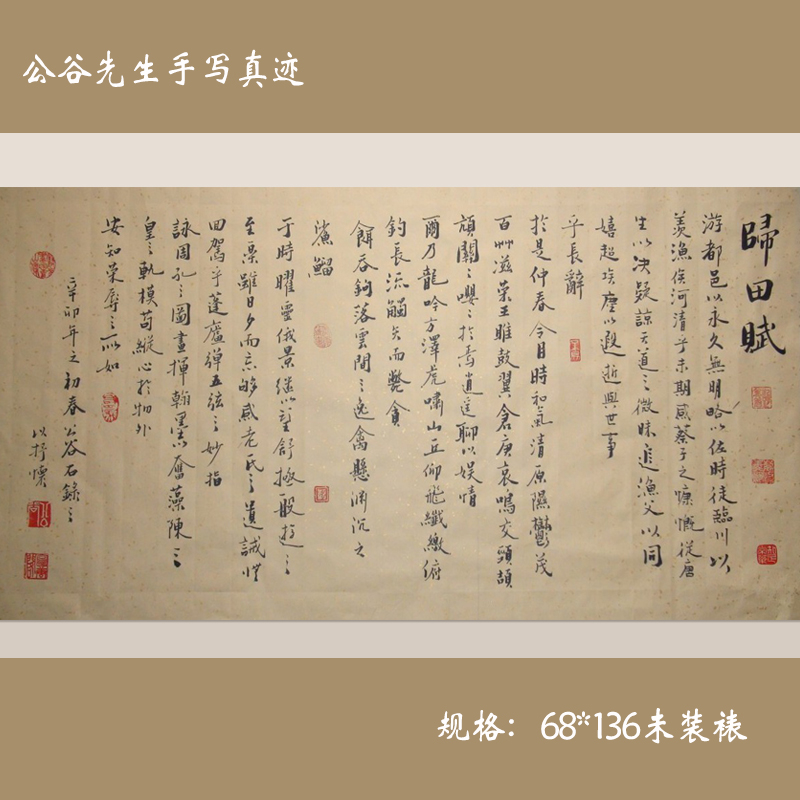 公谷先生手写真迹
歸田賦
游都邑以永久無明略以佐時徒臨川以
羨漁俟河清乎未期感蔡子之慷慨從唐
生以決疑諒天道之微昧追漁父以同
嬉超埃塵以遐逝與世事
乎長辭
於是仲春令月時和氣清原隰鬱茂
百艸滋榮王雎鼓翼倉庚哀鳴交頸頡
頏關〻嚶〻於焉逍遥聊以娱情
爾乃龍吟方澤虎嘯山丘仰飛纖繳俯
釣長流觸矢而斃貪
餌吞鉤落雲間之逸禽懸淵沉之
鯊鰡
于時曜靈俄景繼以望舒極般遊之
至樂雖日夕而忘劬感老氏之遺誡將
回駕乎蓬廬彈五弦之妙指
詠周孔之圖書揮翰墨以奮藻陳三
皇之軌模苟縱心於物外
安知榮辱之所如
辛卯年之初春公谷石錄之
以抒懷
规格：68*136未装裱